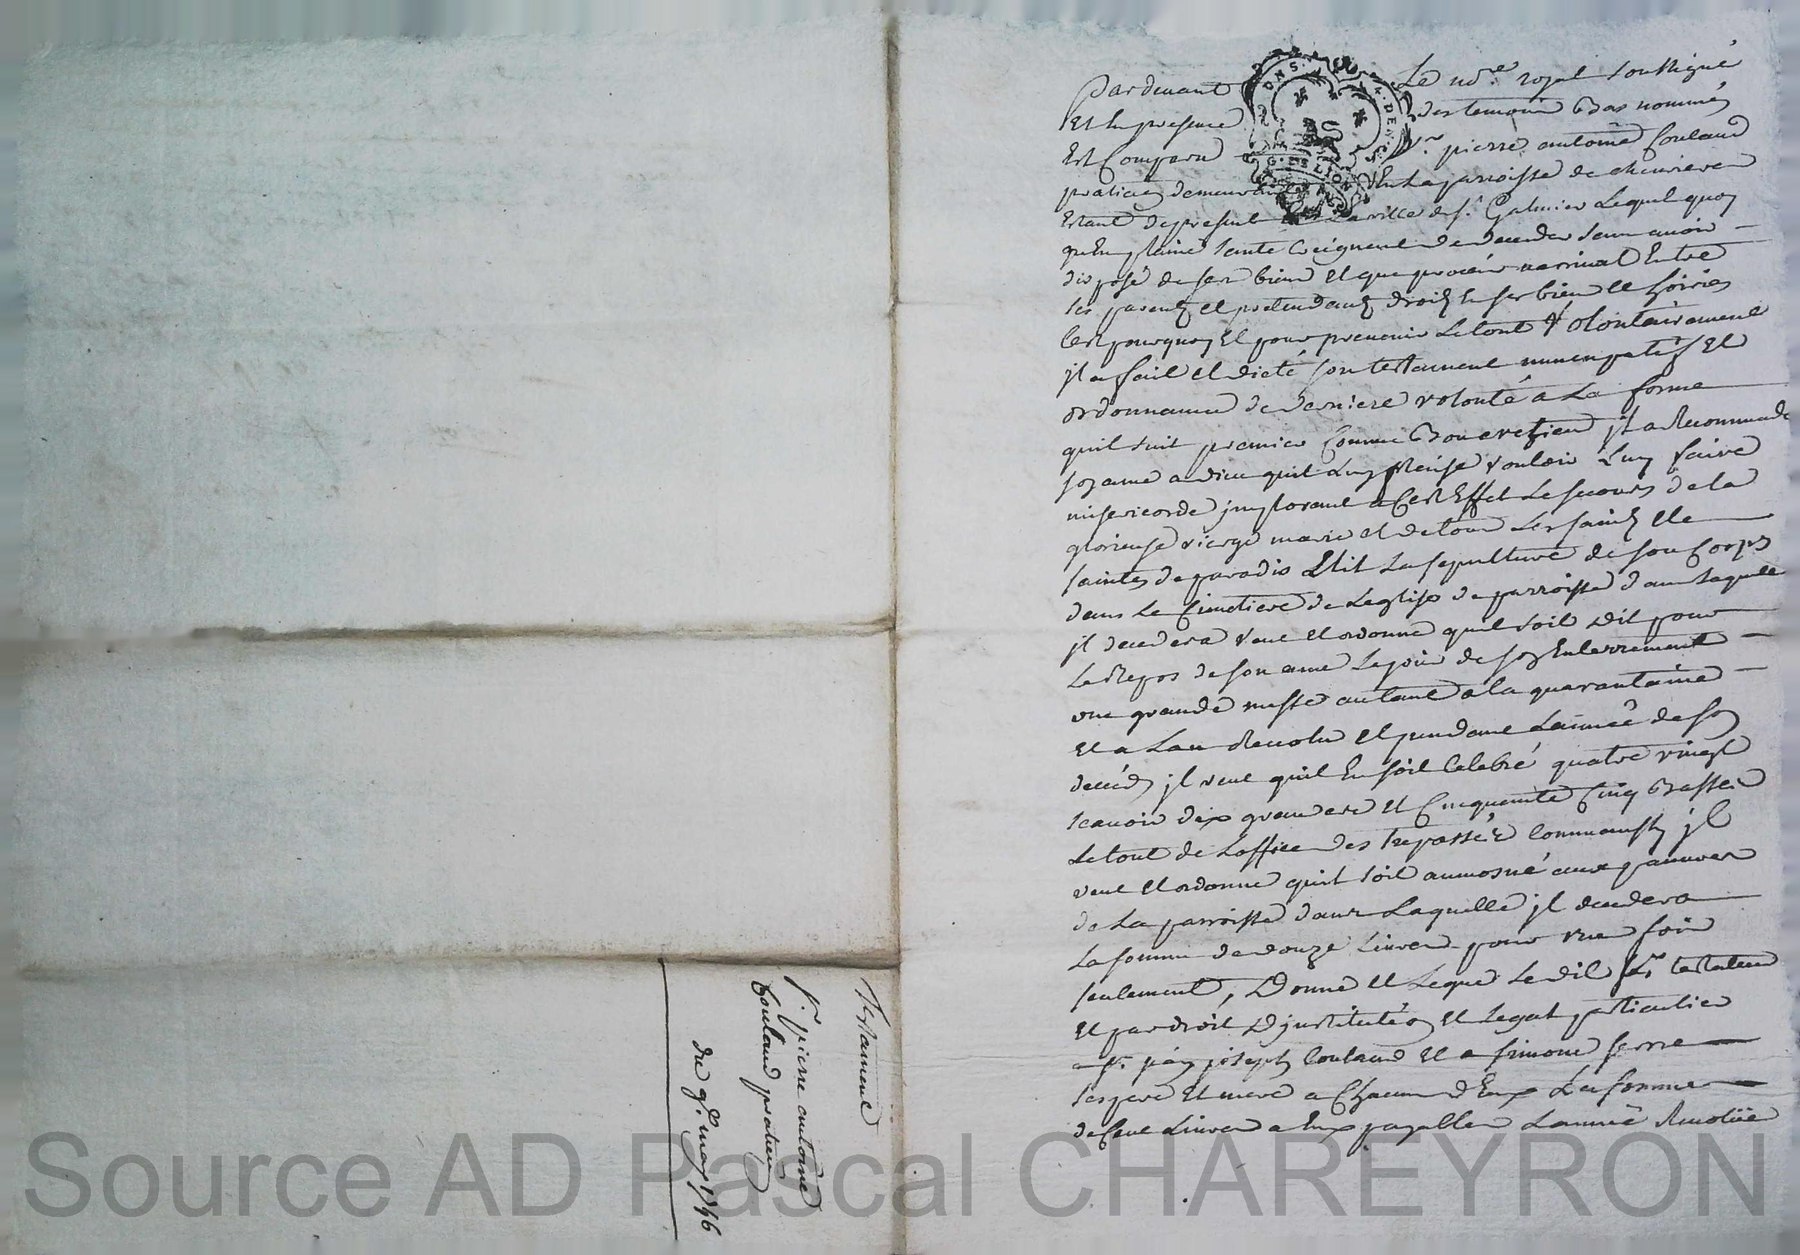 Testament
Sr. pierre antoine
Couland praticien
du 9e. may 1746
Pardevant Le nore royal soubsigné
Et En presence des temoins Bas nommés
Est Comparu Sr. pierre antoine Couland
praticien demeurant En La parroisse de chevriere
Estant de present En La ville de St. Galmier Lequel quoy
qu'En plaine santé Craignant de deceder sans avoir
disposé de ses biens Et que procés narrivat Entre
ses parents et pretendants droits En ses biens et hoiries
Cest pourquoy Et pour prevenir Le tout Volontairement
jl a fait et dicté son testament nuncupatif Et
ordonnance de derniere volonté a La forme
quil suit premier Comme Bon cretien jl a Recommandé
son ame a dieu quil Luy plaise vouloir Luy faire
misericorde jmplorant a Cest Effet Le secours de la
glorieuse vierge marie et de tous Les saints Et
saintes de paradis Elit La sepulture de son Corps
dans Le Cimetiere de Leglise de parroisse dans laquelle
jl decedera veut Et ordonne quil soit Dit pour
Le Repos de son ame Le jour de son Enterrement
une grande messe autant a la quarantaine
Et a Lan Revolu et pendant Lannée de son
decéds jl veut quil En soit Celebré quatre vingt
scavoir dix grandes et Cinquante Cinq Basses
Le tout de Loffice des trepassés Commaussy jl
veut Et ordonne quil soit aumosné aux pauvres
de La parroisse dans Laquelle jl decedera
La somme de douze Livres pour une fois
seulement, Donne Et Legue Le dit Sr. testateur
Et par droit Djnstitution Et Legat particulier
a Sr. jean joseph Couland Et a simone serre
ses pere Et mere a Chacun dEux La somme
de Cent Livres a Eux payables Lannée Revolüe
Source AD Pascal CHAREYRON